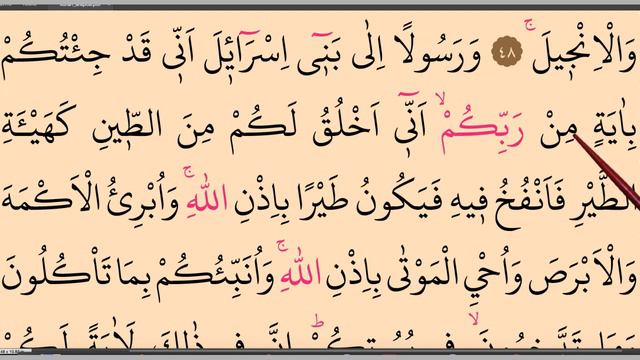 وَالْاِنْجٖيلَۚ ﴿٤٨﴾ وَرَسُولًا اِلٰى بَنٖٓي اِسْرَٓائٖلَ اَنّٖي قَدْ جِئْتُكُمْ
بِاٰيَةٍ مِنْ رَبِّكُمْۙ اَنّٖٓي اَخْلُقُ لَكُمْ مِنَ الطّٖينِ كَهَيْـَٔةِ
الطَّيْرِ فَاَنْفُخُ فٖيهِ فَيَكُونُ طَيْرًا بِاِذْنِ اللّٰهِۚ وَاُبْرِئُ الْاَكْمَهَ
وَالْاَبْرَصَ وَاُحْيِ الْمَوْتٰى بِاِذْنِ اللّٰهِۚ وَاُنَبِّئُكُمْ بِمَا تَأْكُلُونَ
وَمَا تَدَّخِرُونَۙ فٖي بُيُوتِكُمْؕ اِنَّ فٖي ذٰلِكَ لَاٰيَةً لَكُمْ